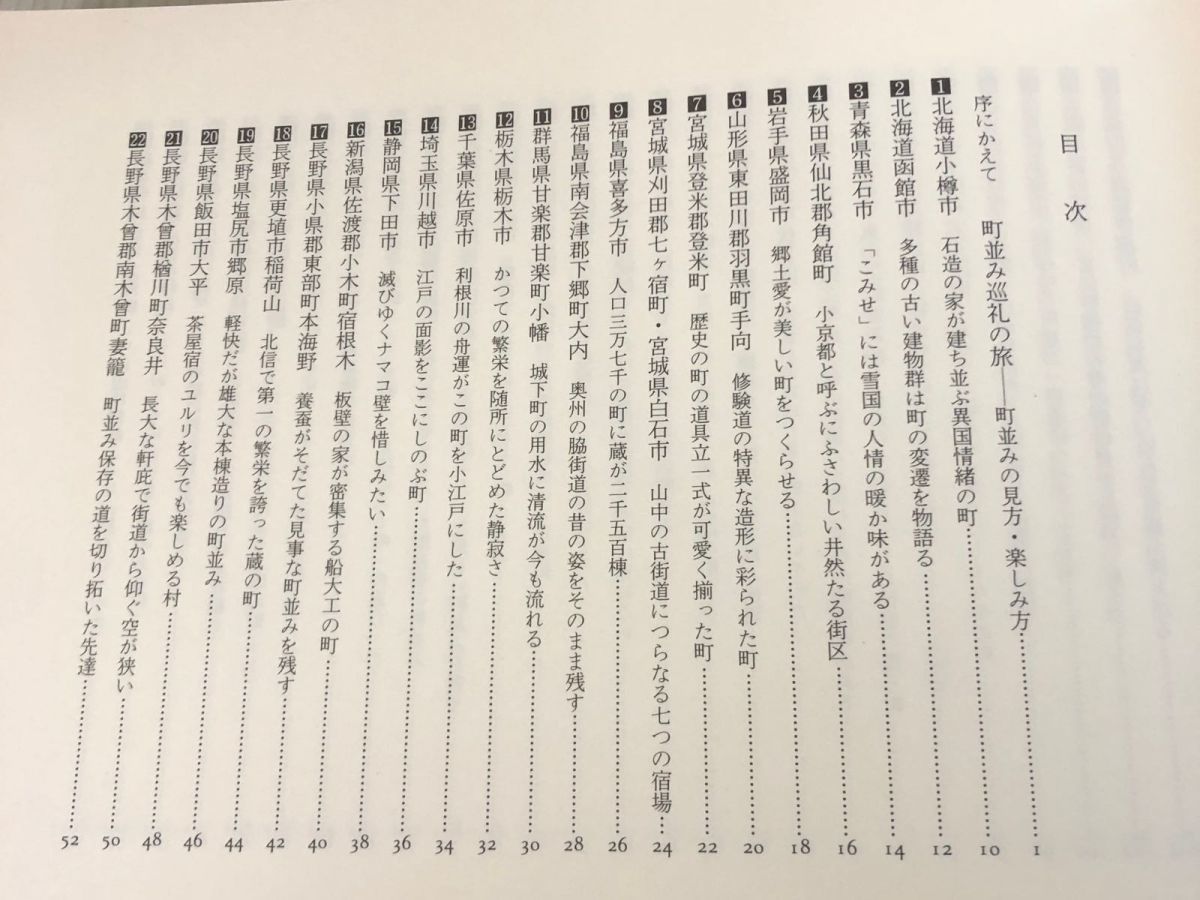 目次
序にかえて　町並み巡礼の旅――町並みの見方・楽しみ方……1
1 北海道小樽市　石造の家が建ち並ぶ異国情緒の町……10
2 北海道函館市　多種の古い建物群は町の変遷を物語る……12
3 青森県黒石市　「こみせ」には雪国の人情の暖か味がある……14
4 秋田県仙北郡角館町　小京都と呼ぶにふさわしい井然たる街区……16
5 岩手県盛岡市　郷土愛が美しい町をつくらせる……18
6 山形県東田川郡羽黒町手向　修験道の特異な造形に彩られた町……20
7 宮城県登米郡登米町　歴史の町の道具立一式が可愛く揃った町……22
8 宮城県刈田郡七ヶ宿町・宮城県白石市　山中の古街道につらなる七つの宿場……24
9 福島県喜多方市　人口三万七千の町に蔵が二千五百棟……26
10 福島県南会津郡下郷町大内　奥州の脇街道の昔の姿をそのまま残す……28
11 群馬県甘楽郡甘楽町小幡　城下町の用水に清流が今も流れる……30
12 栃木県栃木市　かつての繁栄を随所にとどめた静寂さ……32
13 千葉県佐原市　利根川の舟運がこの町を小江戸にした……34
14 埼玉県川越市　江戸の面影をここにしのぶ町……36
15 静岡県下田市　滅びゆくナマコ壁を惜しみたい……38
16 新潟県佐渡郡小木町宿根木　板壁の家が密集する船大工の町……40
17 長野県小県郡東部町本海野　養蚕がそだてた見事な町並みを残す……42
18 長野県更埴市稲荷山　北信で第一の繁栄を誇った蔵の町……44
19 長野県塩尻市郷原　軽快だが雄大な本棟造りの町並み……46
20 長野県飯田市大平　茶屋宿のユルリを今でも楽しめる村……48
21 長野県木曾郡楢川町奈良井　長大な軒庇で街道から仰ぐ空が狭い……50
22 長野県木曾郡南木曾町妻籠　町並み保存の道を切り拓いた先達……52